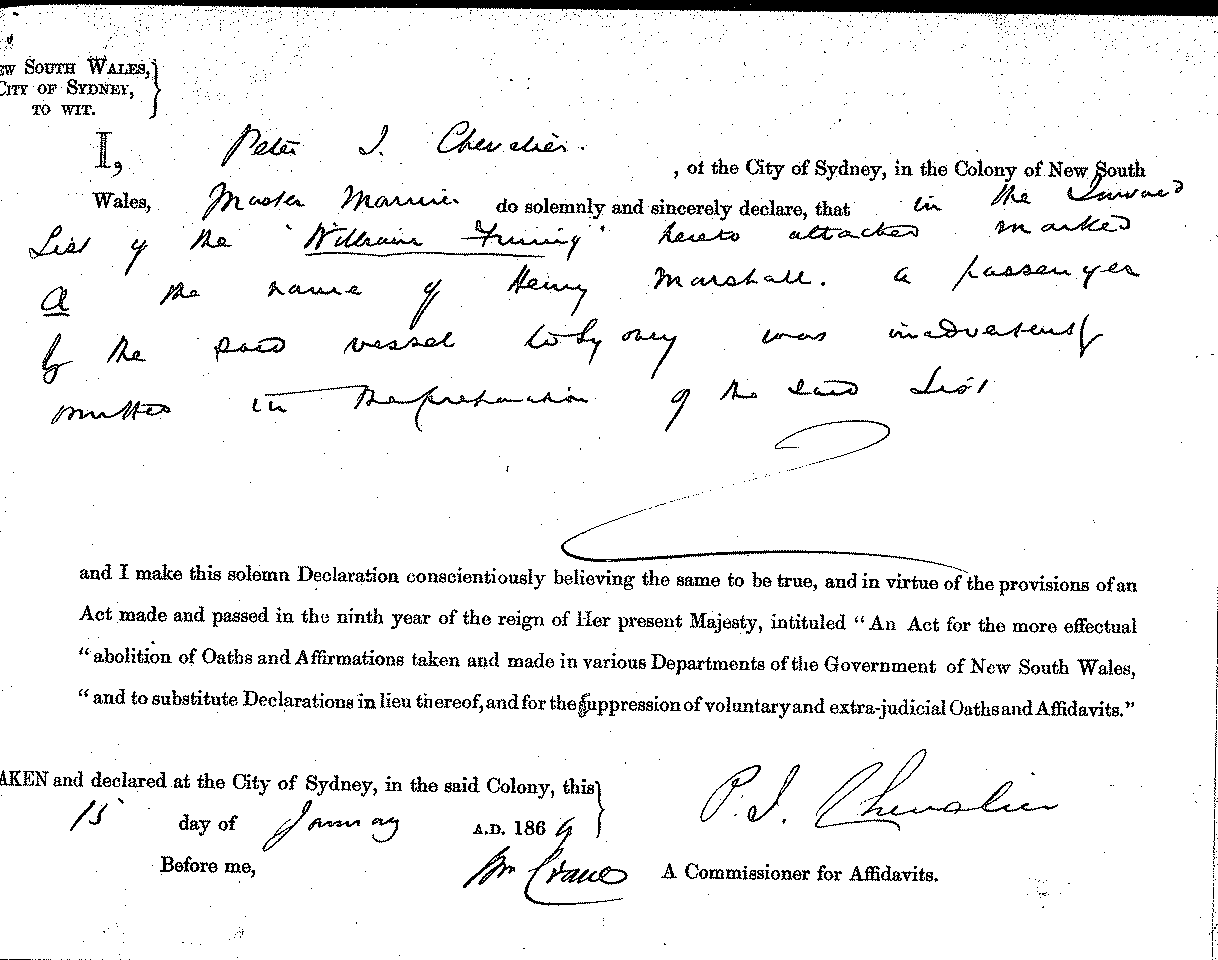 EW SOUTH WALES,
CITY OF SYDNEY,
TO WIT.
I, Peter J. Chevalier.
, of the City of Sydney, in the Colony of New South
Wales, Master Mariner do solemnly and sincerely declare, that in the Inward
List of the "William Fruing" hereto attached marked
A the name of Henry Marshall. a passenger
by the said vessel to Sydney was inadvertently
omitted in the preparation of the said List
and I make this solemn Declaration conscientiously believing the same to be true, and in virtue of the provisions of an
Act made and passed in the ninth year of the reign of Her present Majesty, intituled “An Act for the more effectual
“abolition of Oaths and Affirmations taken and made in various Departments of the Government of New South Wales,
“and to substitute Declarations in lieu thereof, and for the suppression of voluntary and extra-judicial Oaths and Affidavits.”
AKEN and declared at the City of Sydney, in the said Colony, this
15 day of January A.D. 1869
P. J. Chevalier
Before me, Wm Crane A Commissioner for Affidavits.